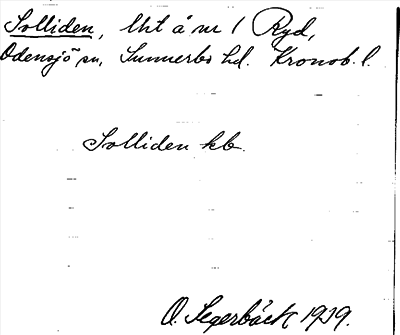 Solliden, lht å nr 1 Ryd,
Odensjö sn, Sunnerbo hd. Kronob. l.
Solliden kb.
O. Segerbäck 1929.